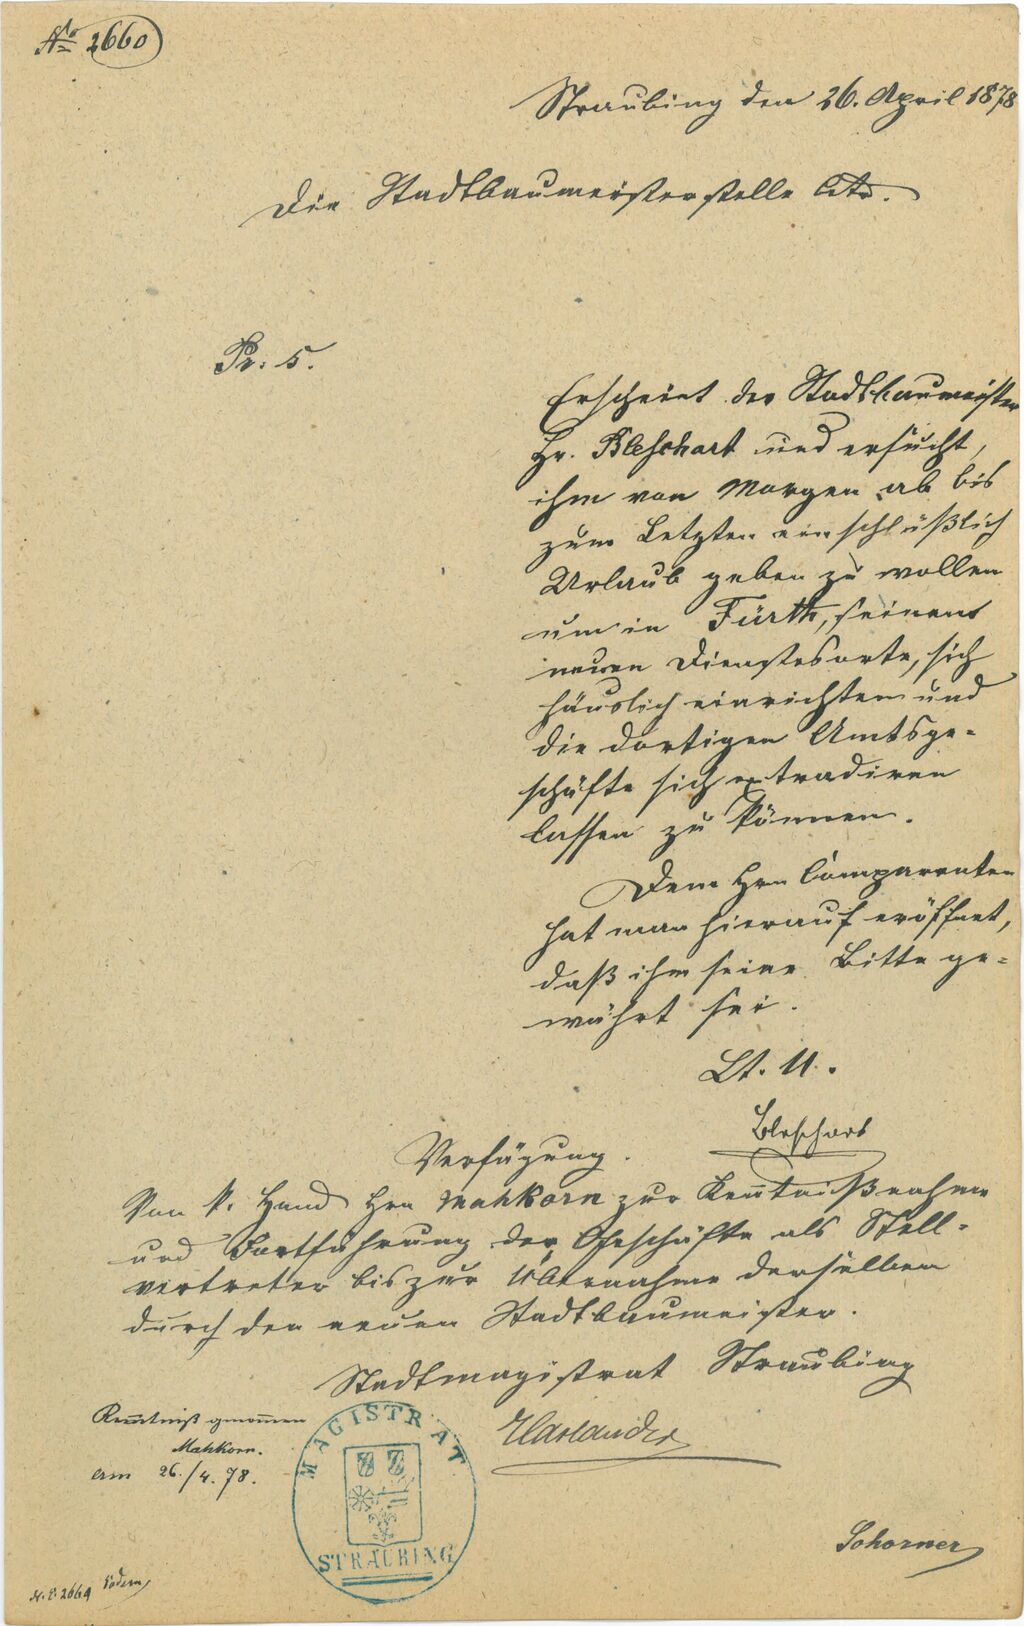 No 2660
Straubing den 26. April 1878
Die Stadtbaumeisterstelle betr.
Pr: 5.
Erscheint der Stadtbaumeister
Hr. Bleschart und ersucht,
ihm von Morgen ab bis
zum Letzten einschlüßlich
Urlaub geben zu wollen
um in Fürth, seinem
neuen Dienstesorte, sich
häuslich einrichten und
die dortigen Amtsge-
schäfte sich extradiren
lassen zu können.
Dem Hrn Comparenten
hat man hierauf eröffnet,
daß ihm seine Bitte ge-
währt sei.
Lt. U.
Bleschart
Verfügung.
Von k. Hand Hrn Mahkorn zur Kenntnißnahme
und Fortführung der Geschäfte als Stell-
vertreter bis zur Übernahme derselben
durch den neuen Stadtbaumeister.
Stadtmagistrat Straubing
Harlander
Kenntniß genommen
Mahkorn.
am 26./4. 78.
MAGISTRAT
STRAUBING
Schorner
N. E. 2664